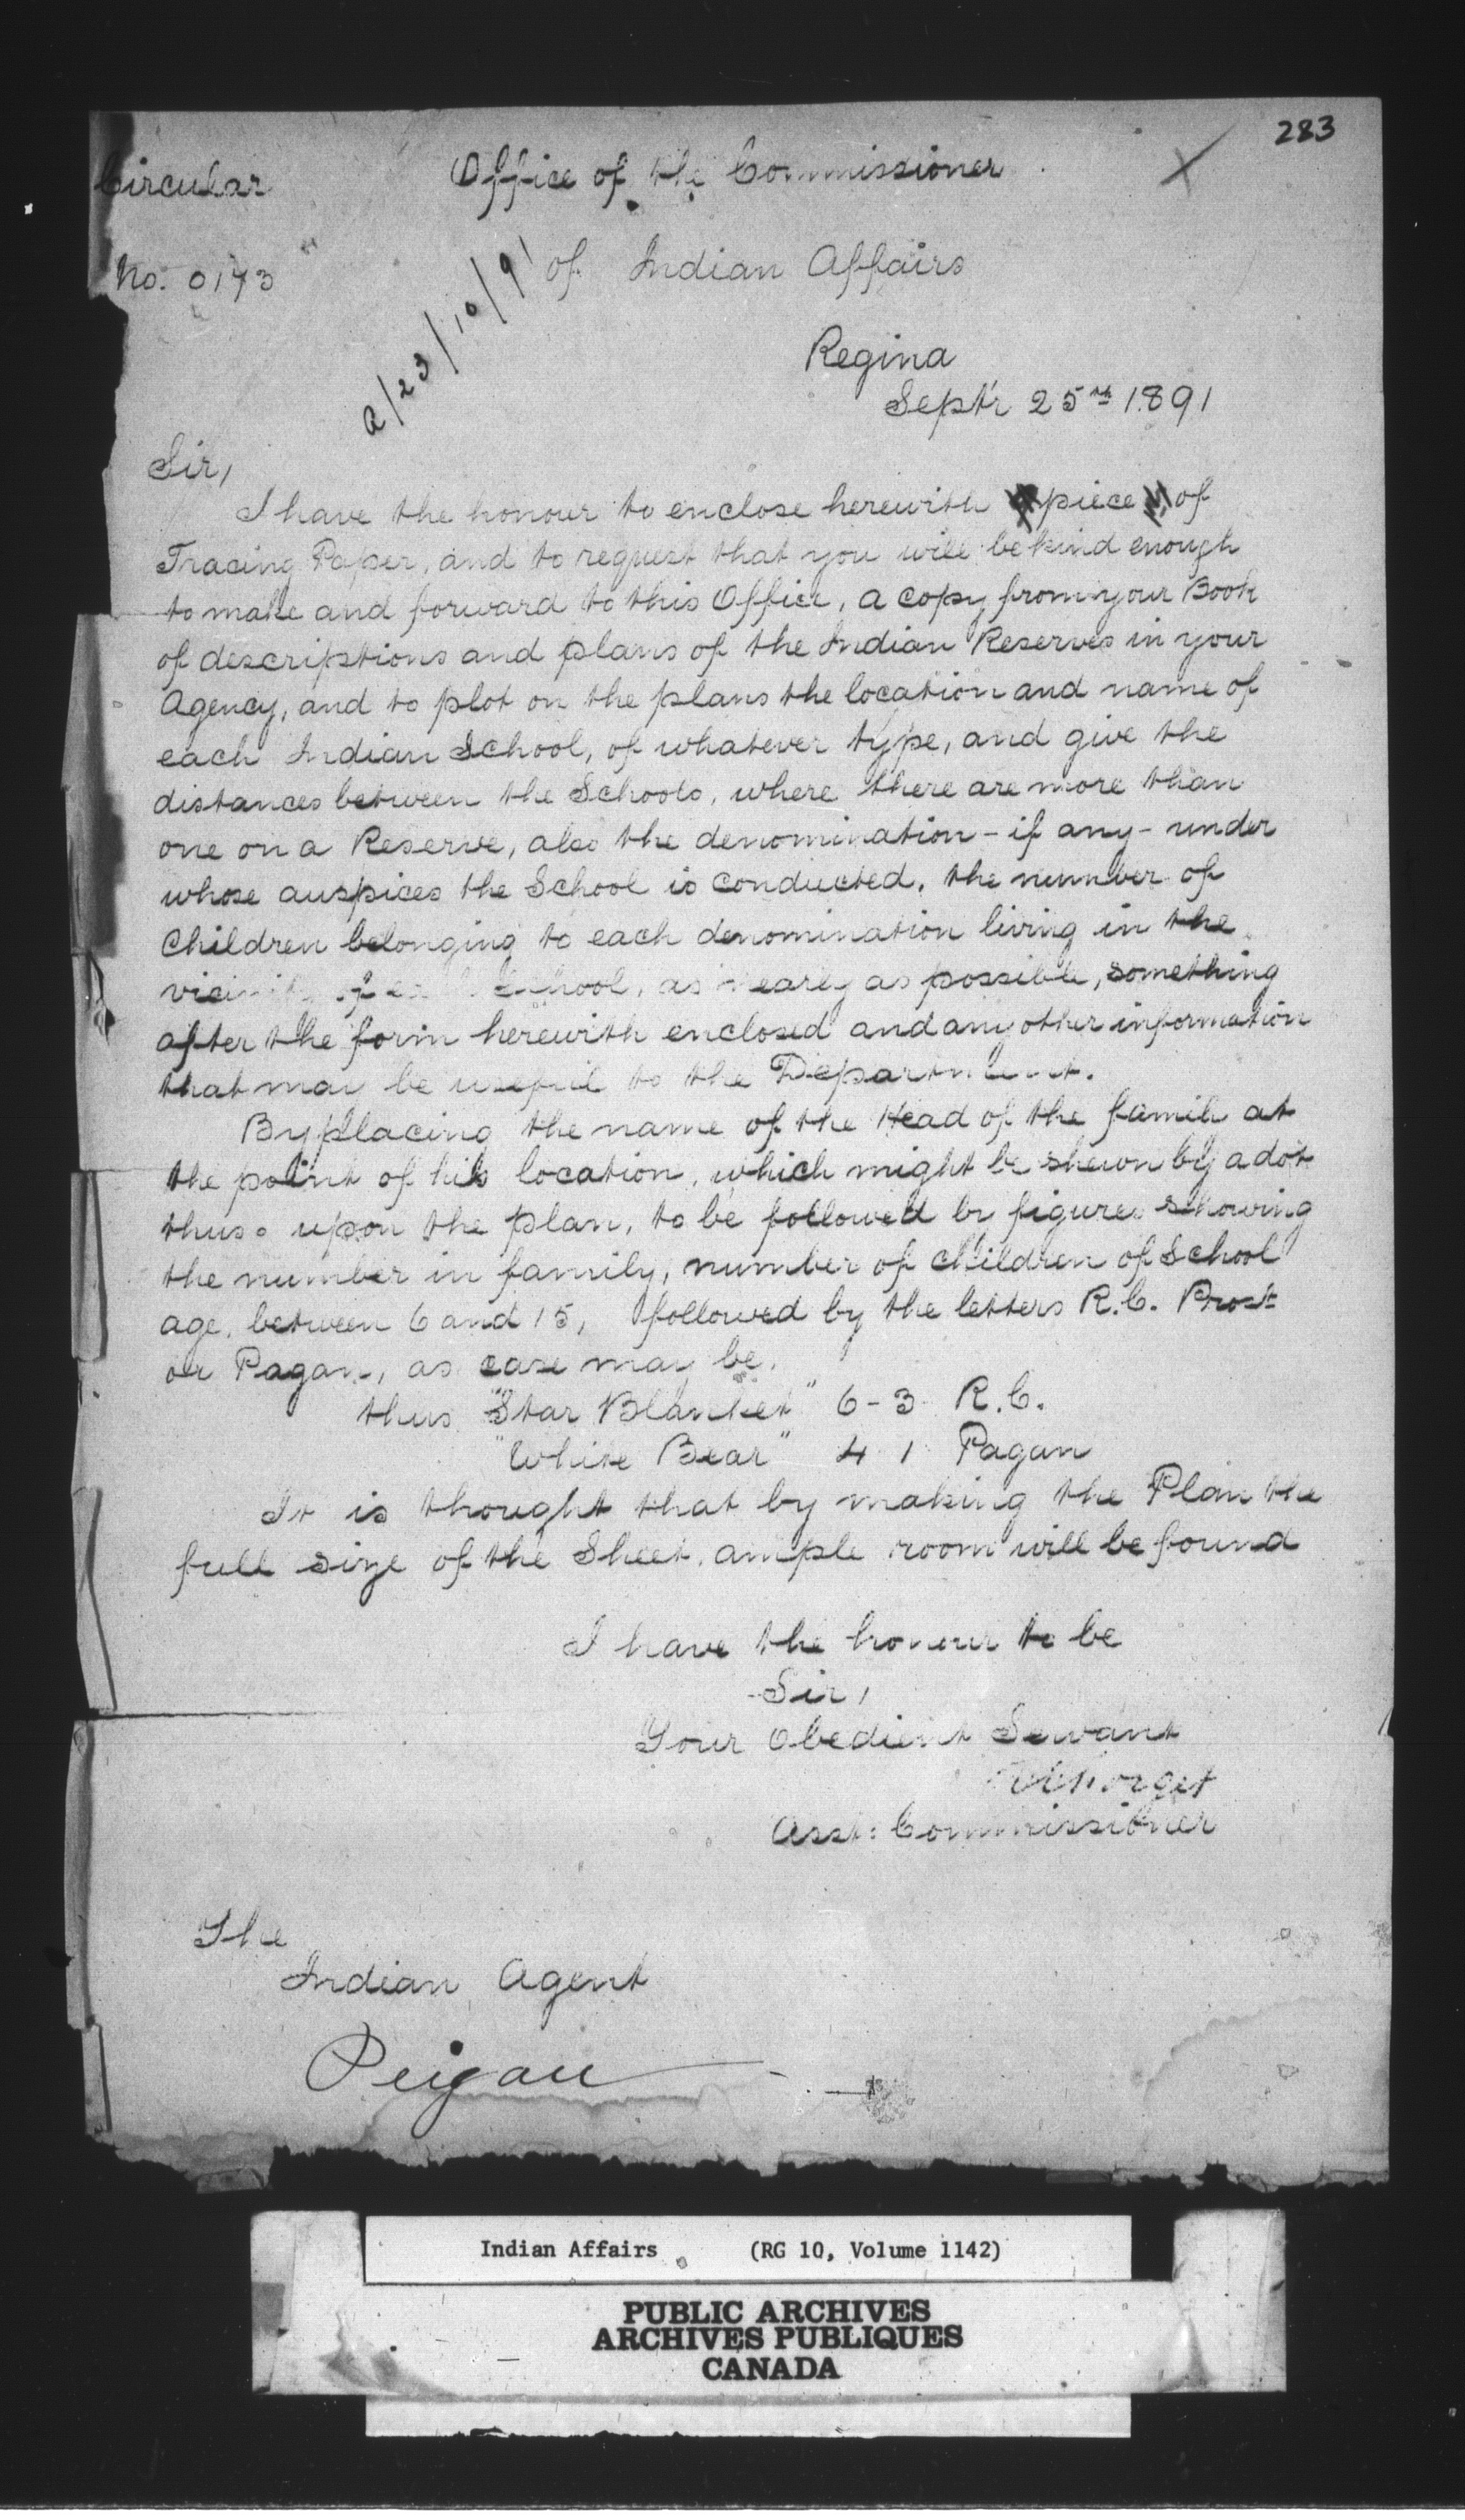 283
Circular
Office of the Commissioner
No. 0173
of Indian Affairs
a/23/10/91
Regina
Sept'r 25th 1891
Sir,
I have the honour to enclose herewith piece of
Tracing Paper, and to request that you will be kind enough
to make and forward to this Office, a copy from your Book
of descriptions and plans of the Indian Reserves in your
Agency, and to plot on the plans the location and name of
each Indian School, of whatever type, and give the
distances between the Schools, where there are more than
one on a Reserve, also the denomination - if any - under
whose auspices the School is conducted, the number of
Children belonging to each denomination living in the
vicinity of School, as nearly as possible, something
after the form herewith enclosed and any other information
that may be useful to the Department.
By placing the name of the Head of the family at
the point of his location, which might be shewn by a dot
thus . upon the plan, to be followed by figures showing
the number in family, number of children of School
age, between 6 and 15, followed by the letters R.C. Prost
or Pagan, as case may be.
thus "Star Blanket" 6 - 3 R.C.
"White Bear" 4 1 Pagan
It is thought that by making the Plan the
full size of the Sheet, ample room will be found
I have the honour to be
Sir,
Your Obedient Servant
Forget
Asst: Commissioner
The
Indian Agent
Peigan
Indian Affairs (RG 10, Volume 1142)
PUBLIC ARCHIVES
ARCHIVES PUBLIQUES
CANADA